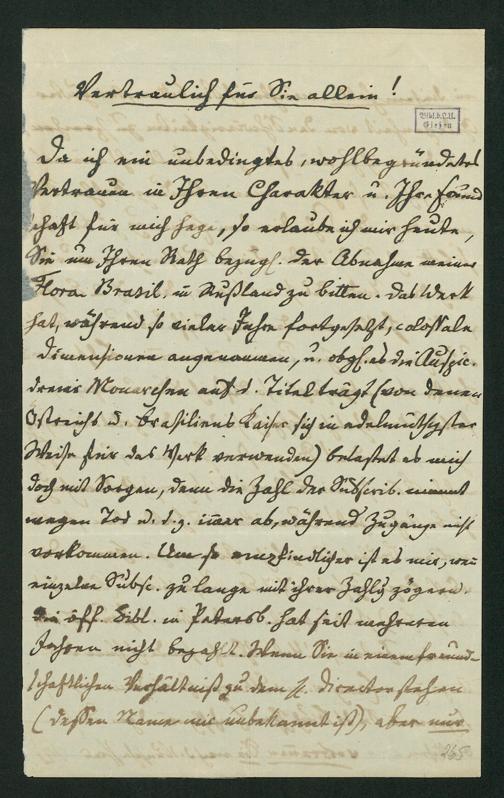 Vertraulich für Sie allein!
Bibl. d. L. U.
Gießen
Da ich ein unbedingtes, wohlbegründetes
Vertrauen in Ihren Charakter u. Ihre Freund
schaft für mich hege, so erlaube ich mir heute,
Sie um Ihren Rath bezügl. der Abnahme meiner
Flora Brasil. in Rußland zu bitten. Das Werk
hat, während so vieler Jahre fortgesetzt, colossale
Dimensionen angenommen, u. obgl. es die Auspic.
dreier Monarchen auf d. Titel trägt (von denen
Östreichs u. Brasiliens Kaiser sich in edelmüthigster
Weise für das Werk verwenden) belastet es mich
doch mit Sorgen, denn die Zahl der Subscrib. nimmt
wegen Tod u. d. g. immer ab, während Zugänge nicht
vorkommen. Um so empfindlicher ist es mir, wenn
einzelne Subsc. zu lange mit ihrer Zahlg zögern.
Die öff. Bibl. in Petersb. hat seit mehreren
Jahren nicht bezahlt. Wenn Sie in einem freund-
schaftlichen Verhältniß zu dem H. Director stehen
(dessen Name mir unbekannt ist), aber nur
265